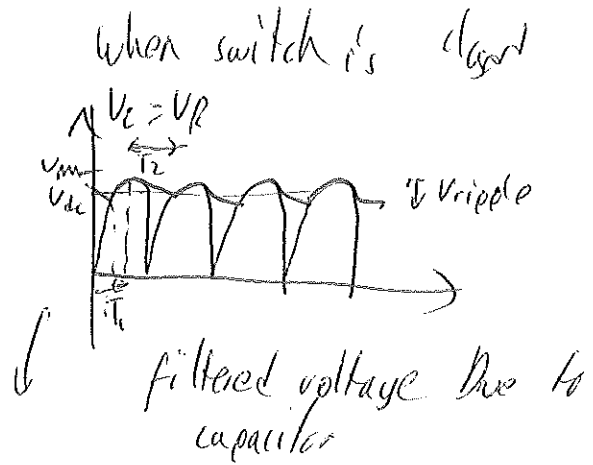 When switch is closed
Vc = VR
T2
Vm
Vdc
Vripple
T1
filtered voltage Due to
capacitor